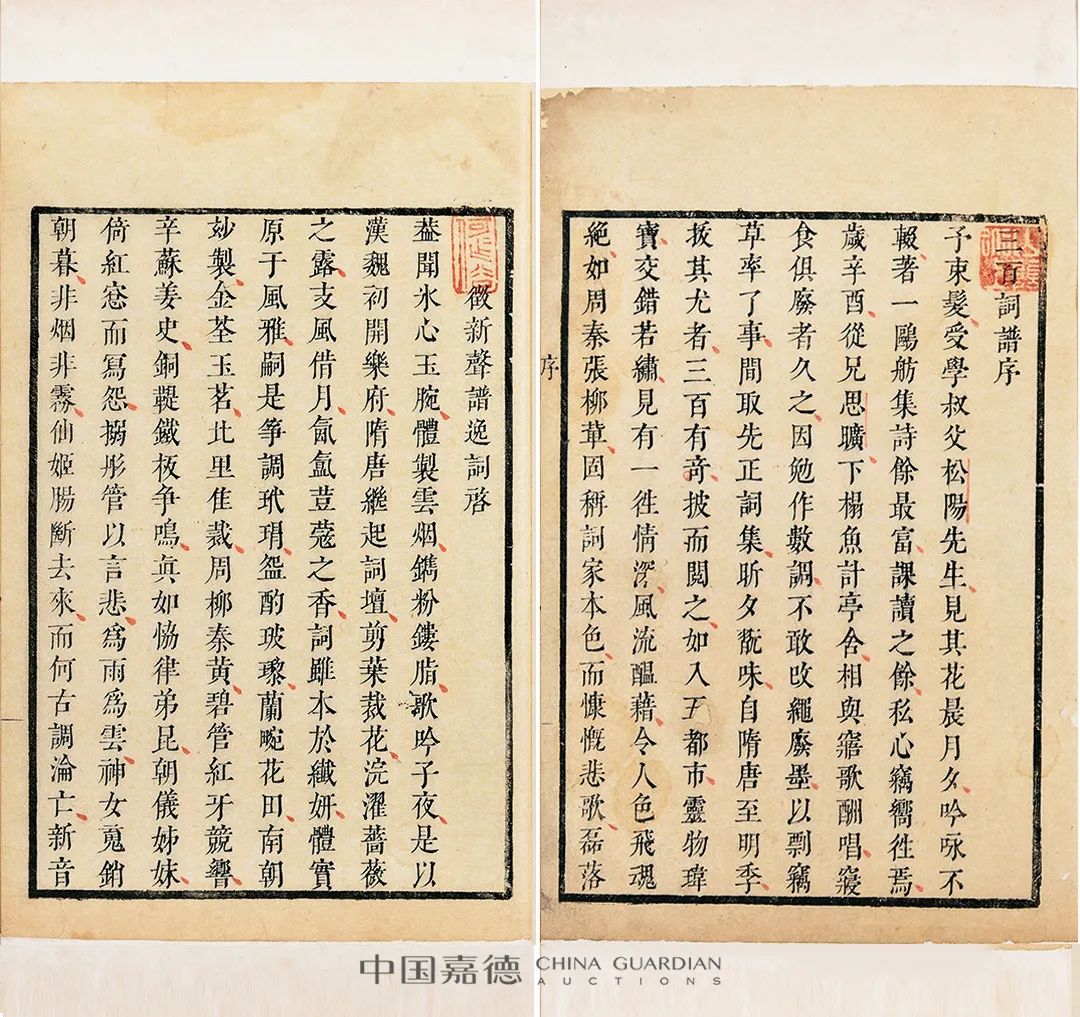 三百詞譜序
予束髮受學叔父松陽先生見其花晨月夕吟咏不
輟著一鷗舫集詩餘最富課讀之餘私心竊嚮徃焉
歲辛酉從兄思曠下榻魚計亭舍相與寤歌酬唱寢
食俱廢者久之因勉作數調不敢改繩廢墨以剽竊
草率了事間取先正詞集昕夕翫味自隋唐至明季
拔其尤者三百有竒披而閱之如入五都市靈物瑋
寶交錯若繡見有一徃情深風流醞藉令人色飛魂
絶如周秦張柳草固稱詞家本色而慷慨悲歌磊落
序
徵新聲譜逸詞啓
葢聞氷心玉腕體製雲烟鐫粉鏤脂歌吟子夜是以
漢魏初開樂府隋唐繼起詞壇剪葉裁花浣濯薔薇
之露支風借月氤氳荳蔻之香詞雖本於纖妍體實
原于風雅嗣是箏調玳瑁盌酌玻瓈蘭畹花田南朝
玅製金荃玉茗北里隹裁周柳秦黄碧管紅牙競響
辛蘇姜史銅鞮鐵板争鳴眞如恊律弟昆朝儀姊妹
倚紅窓而冩怨搦彤管以言悲爲雨爲雲神女䰟銷
朝暮非烟非霧仙姬腸斷去來而何古調淪亡新音
中国嘉德 CHINA GUARDIAN AUCTIONS